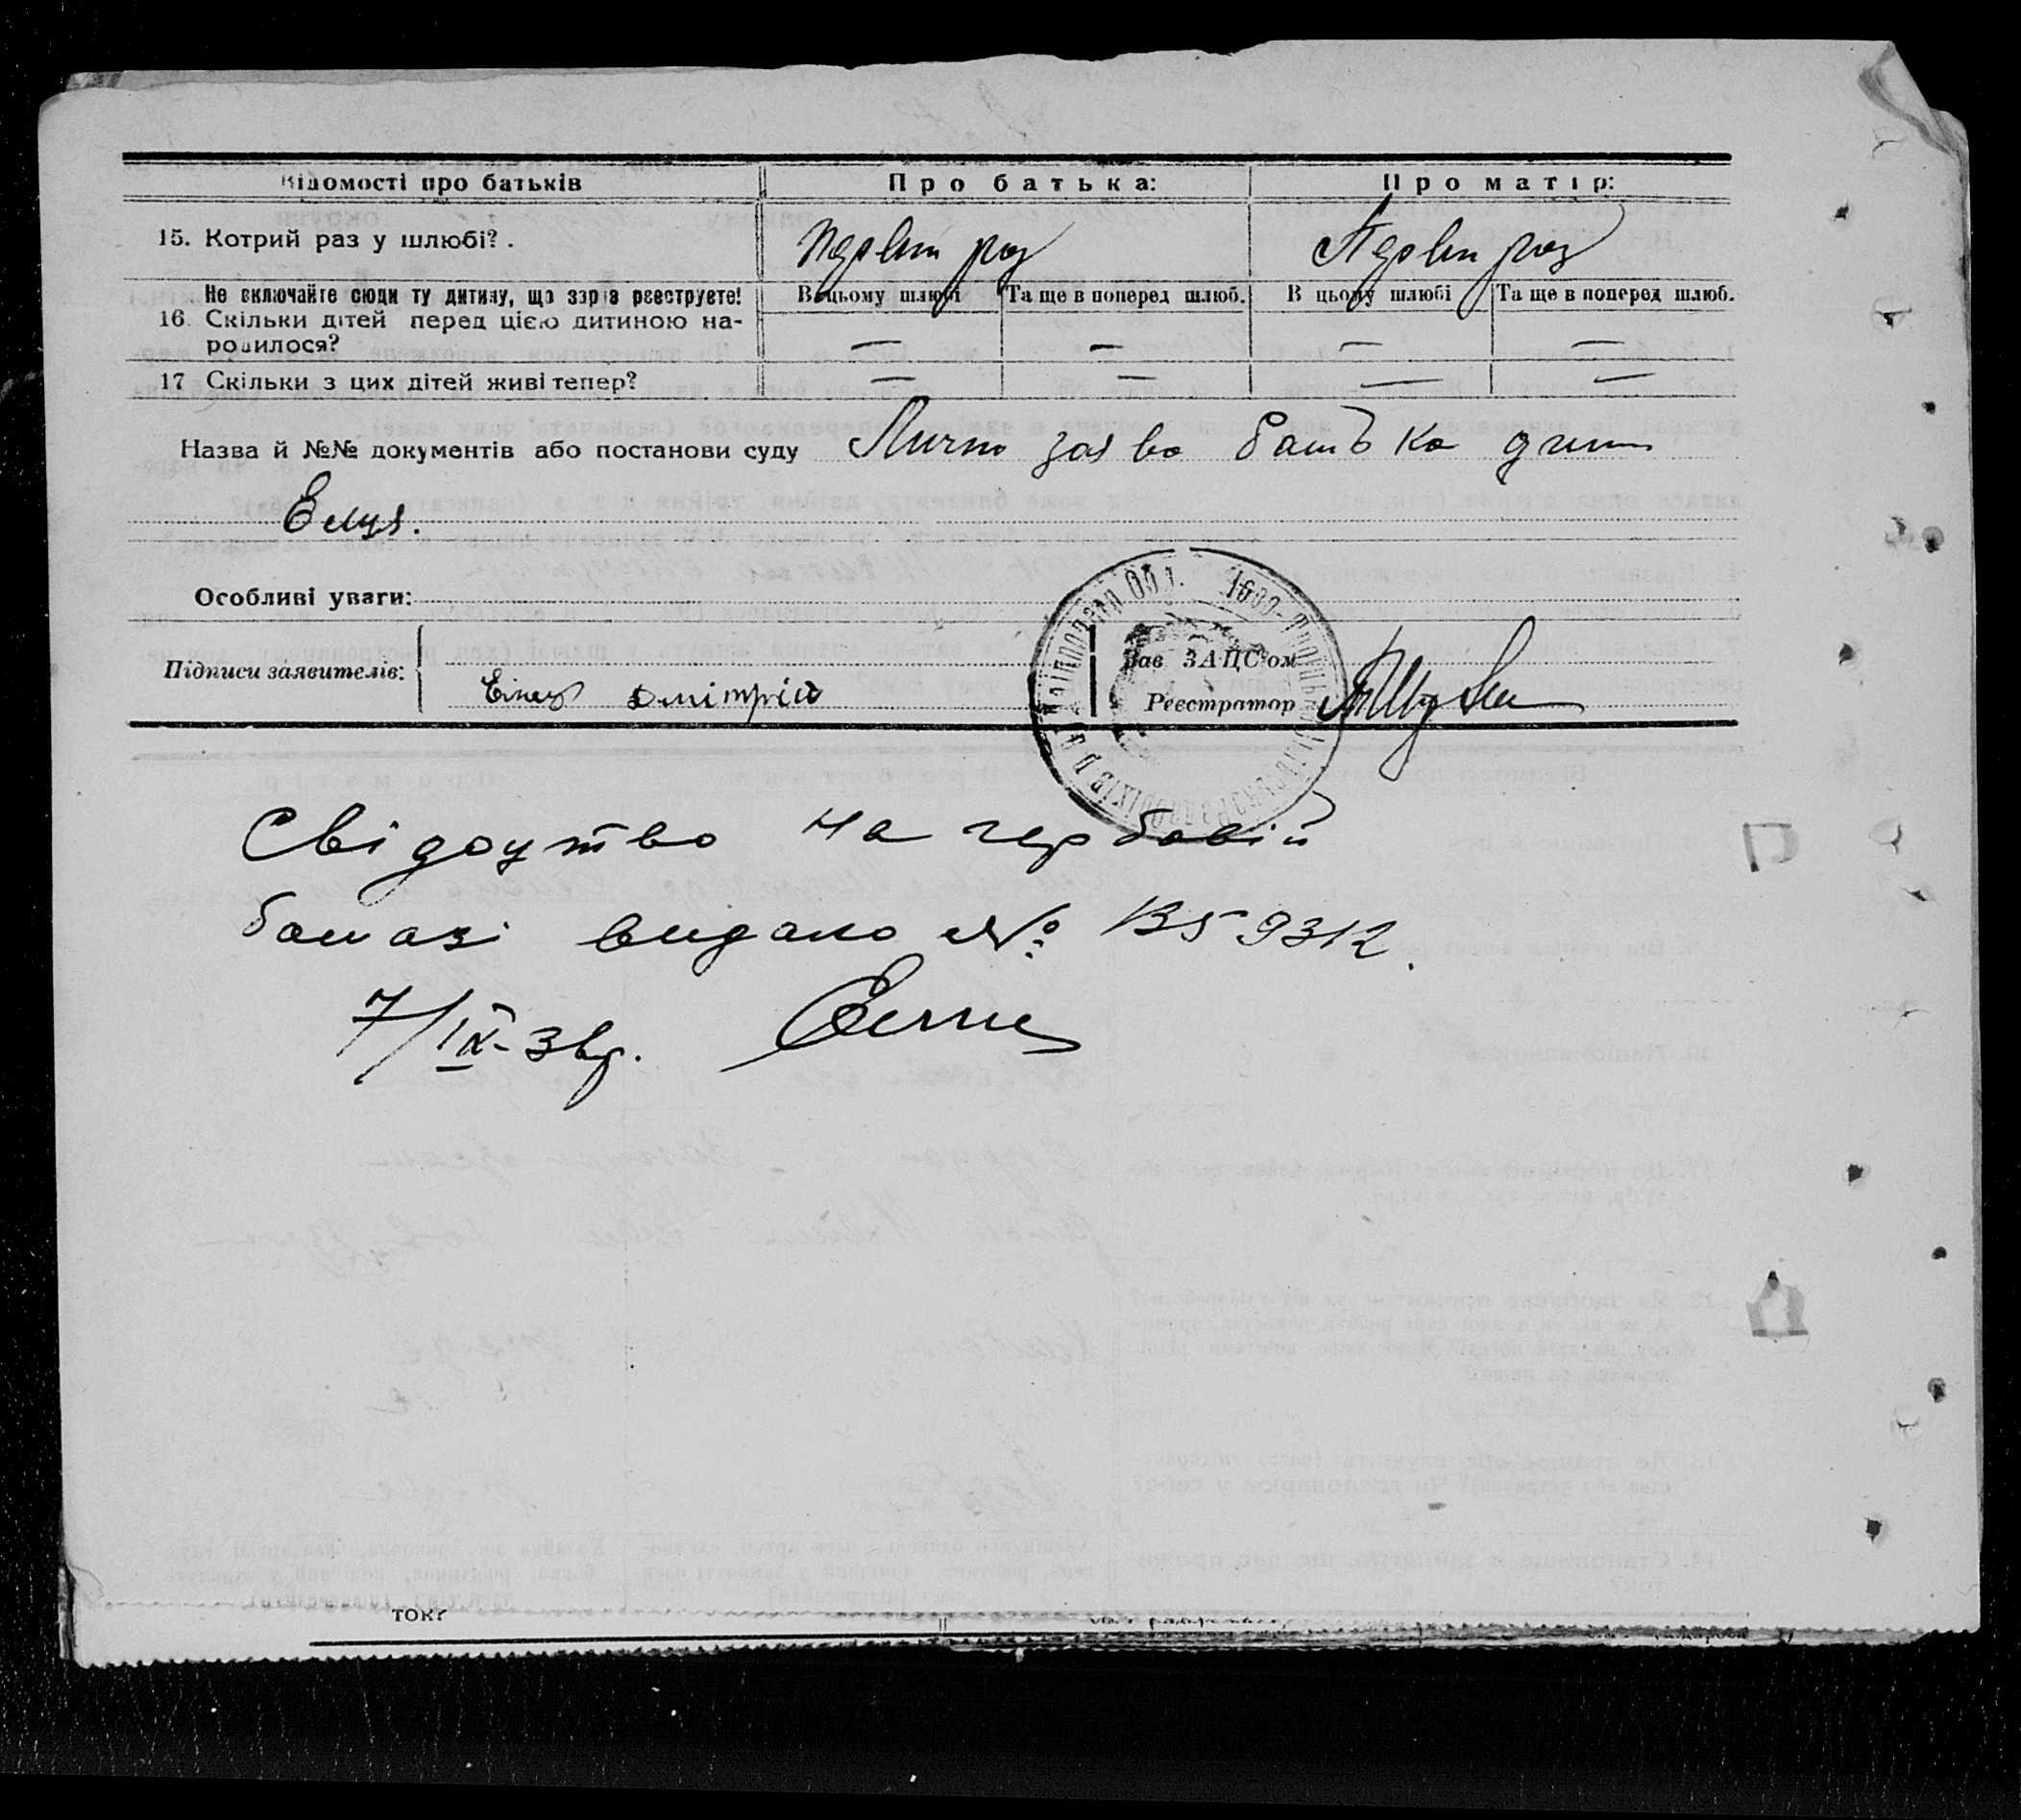 Відомості про батьків Про батька: Про матір:
15. Котрий раз у шлюбі? . Первий раз Первий раз
Не включайте сюди ту дитину, що зараз реєструєте! В цьому шлюбі Та ще в поперед шлюб. В цьому шлюбі Та ще в поперед шлюб.
16. Скільки дітей перед цією дитиною на-
родилося? — — — —
17 Скільки з цих дітей живі тепер? — — — —
Назва й №№ документів або постанови суду Лична заява батька
Особливі уваги:
Зав ЗАЦС'ом
Підписи заявителів: Дмітрій Реєстратор
Свідоцтво на гербовій
бомазі видано №
7/IX-
току